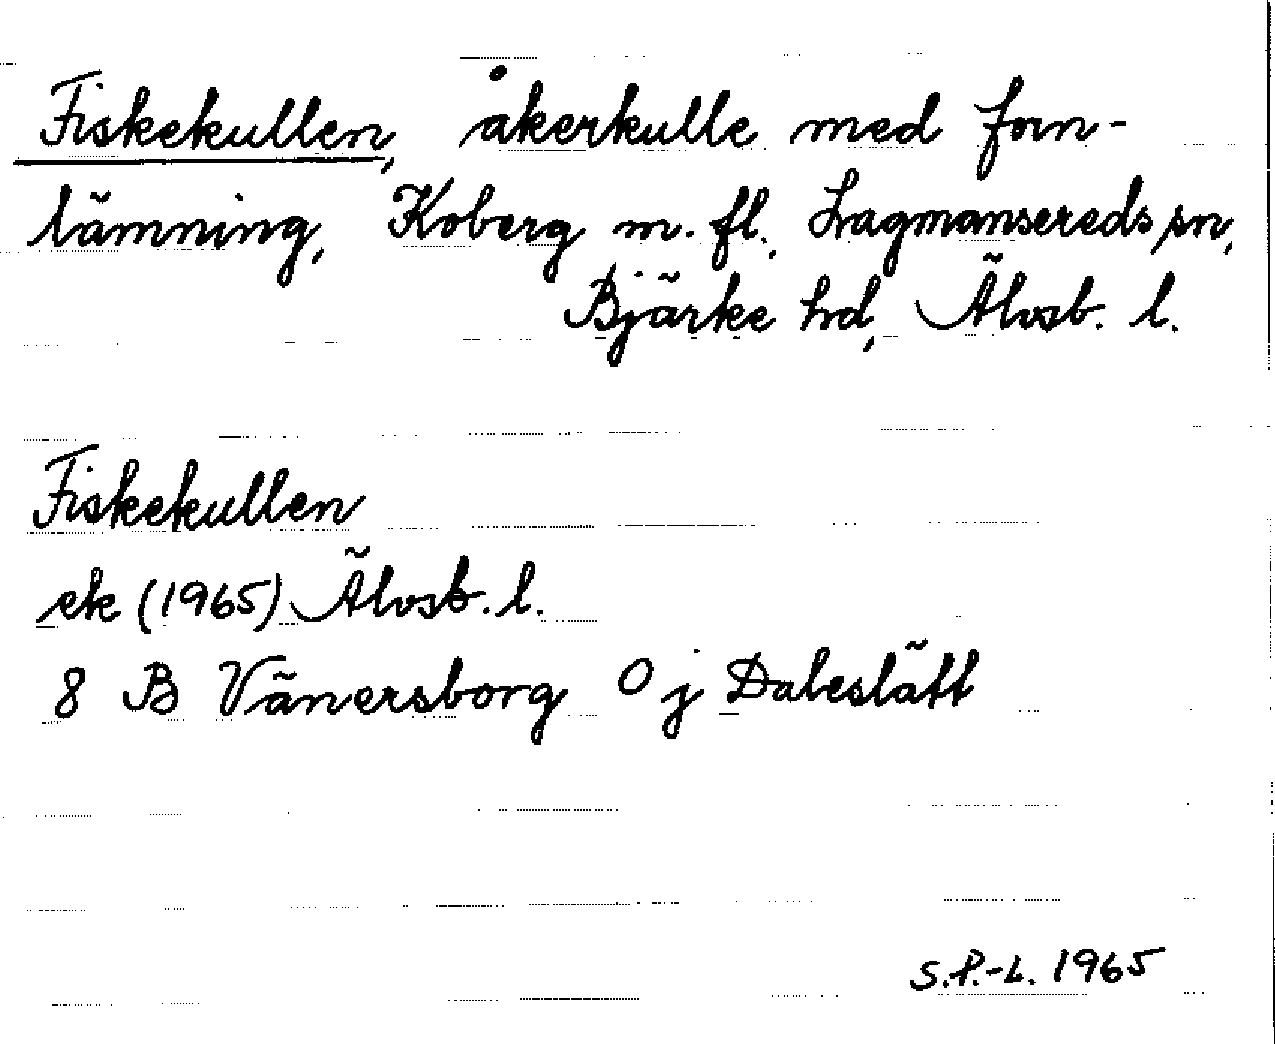 Fiskekullen, åkerkulle med forn-
lämning, Koberg m. fl., Lagmansereds sn,
Bjärke hd, Älvsb. l.
Fiskekullen
ek (1965) Älvsb. l.
8 B Vänersborg 0 j Daleslätt
S.P.-L. 1965